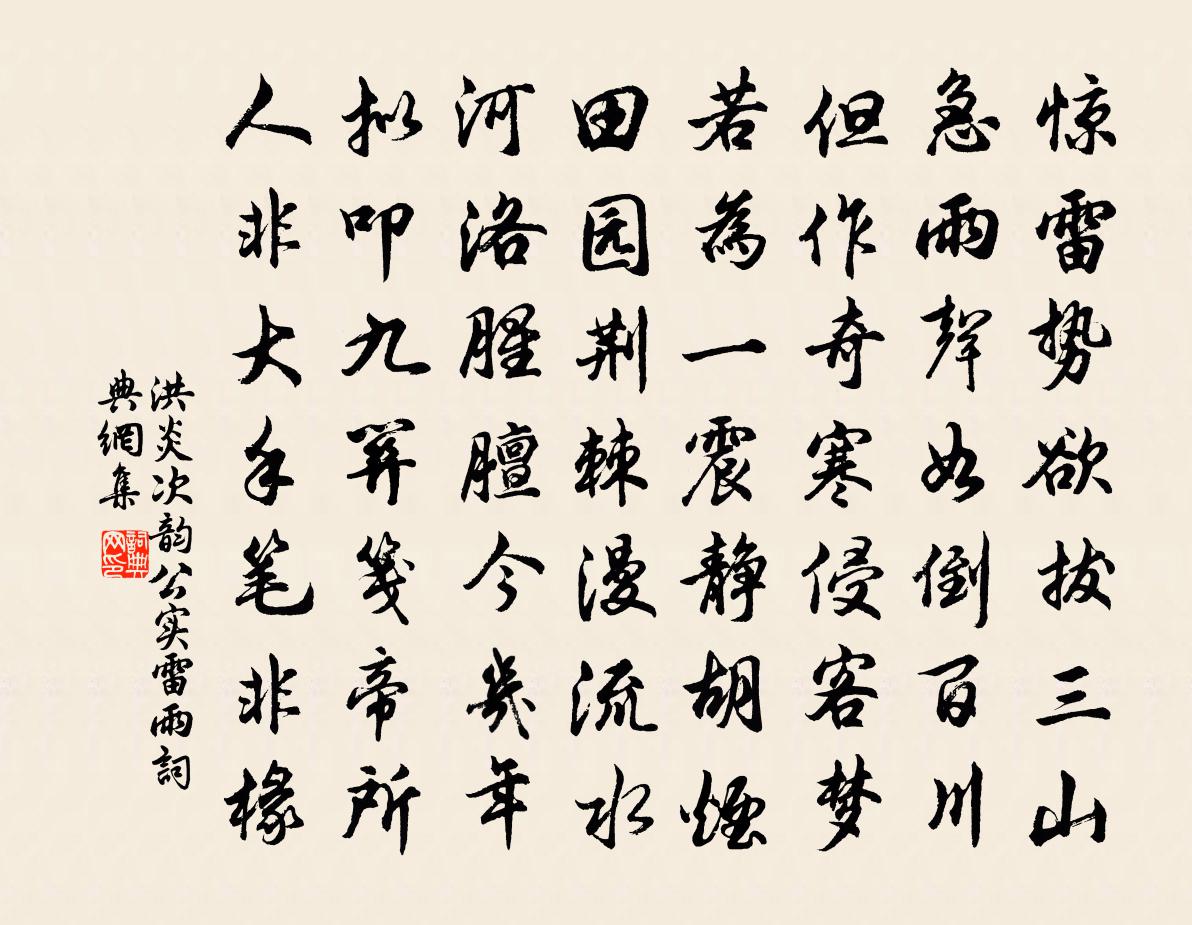 惊雷势欲拔三山
急雨聲如倒百川
但作奇寒侵客梦
若為一震静胡煙
田园荆棘漫流水
河洛腥膻今幾年
拟叩九関箋帝所
人非大手笔非椽
洪炎次韵公实雷雨詞
典網集
詞典网印